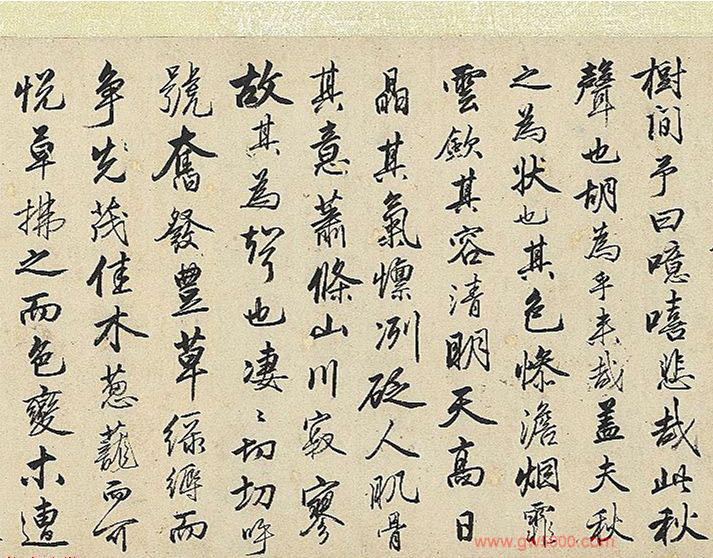 樹間予曰噫嘻悲哉此秋
聲也胡為乎来哉蓋夫秋
之為状也其色惨澹烟霏
雲歛其容清明天高日
晶其氣懍冽砭人肌骨
其意蕭條山川寂寥
故其為聲也凄〻切切呼
號奮發豊草緑縟而
争先茂佳木葱蘢而可
悦草拂之而色變木遭
www.gw5000.com